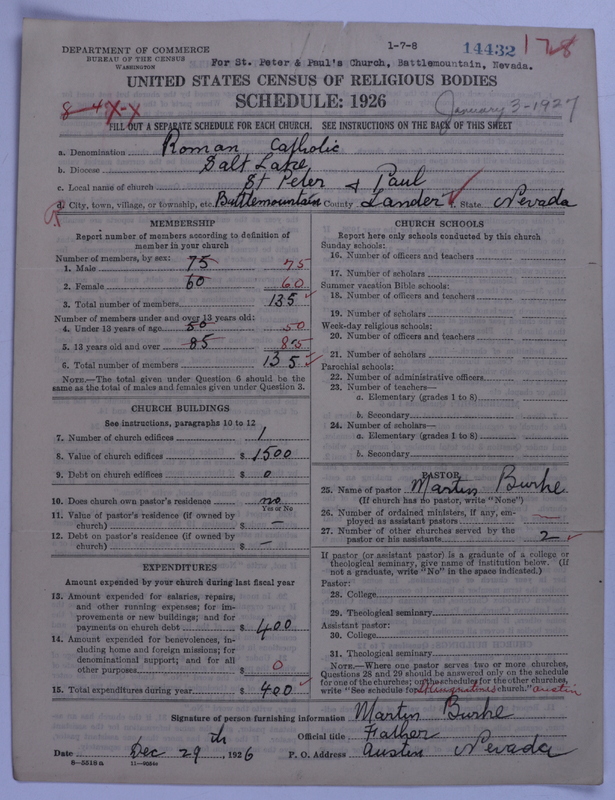 1-7-8
DEPARTMENT OF COMMERCE
BUREAU OF THE CENSUS
WASHINGTON
14432 178
For St. Peter & Paul's Church, Battlemountain, Nevada.
UNITED STATES CENSUS OF RELIGIOUS BODIES
SCHEDULE: 1926
8-4X-X
January 3-1927
FILL OUT A SEPARATE SCHEDULE FOR EACH CHURCH. SEE INSTRUCTIONS ON THE BACK OF THIS SHEET
a. Denomination Roman Catholic
b. Diocese Salt Lake
c. Local name of church St Peter & Paul
d. City, town, village, or township, etc. Buttlemountain County Lander f. State Nevada
MEMBERSHIP
Report number of members according to definition of
member in your church
Number of members, by sex:
1. Male 75 75
2. Female 60 60
3. Total number of members 135
Number of members under and over 13 years old:
4. Under 13 years of age 50 50
5. 13 years old and over 85 85
6. Total number of members 135
NOTE.—The total given under Question 6 should be the
same as the total of males and females given under Question 3.
CHURCH BUILDINGS
See instructions, paragraphs 10 to 12
7. Number of church edifices 1
8. Value of church edifices $ 1500
9. Debt on church edifices $ 0
10. Does church own pastor's residence no
Yes or No
11. Value of pastor's residence (if owned by
church) $ —
12. Debt on pastor's residence (if owned by
church) $ —
EXPENDITURES
Amount expended by your church during last fiscal year
13. Amount expended for salaries, repairs,
and other running expenses; for im-
provements or new buildings; and for
payments on church debt $ 400
14. Amount expended for benevolences, in-
cluding home and foreign missions; for
denominational support; and for all
other purposes $ 0
15. Total expenditures during year $ 400
CHURCH SCHOOLS
Report here only schools conducted by this church
Sunday schools:
16. Number of officers and teachers
17. Number of scholars
Summer vacation Bible schools:
18. Number of officers and teachers
19. Number of scholars
Week-day religious schools:
20. Number of officers and teachers
21. Number of scholars
Parochial schools:
22. Number of administrative officers
23. Number of teachers—
a. Elementary (grades 1 to 8)
b. Secondary
24. Number of scholars—
a. Elementary (grades 1 to 8)
b. Secondary
PASTOR
25. Name of pastor Martin Burke
(If church has no pastor, write "None")
26. Number of ordained ministers, if any, em-
ployed as assistant pastors —
27. Number of other churches served by the
pastor or his assistants 2
If pastor (or assistant pastor) is a graduate of a college or
theological seminary, give name of institution below. (If
not a graduate, write "No" in the space indicated.)
Pastor:
28. College
29. Theological seminary
Assistant pastor:
30. College
31. Theological seminary
NOTE.—Where one pastor serves two or more churches,
Questions 28 and 29 should be answered only on the schedule
for one of the churches; on the schedules for the other churches,
write "See schedule for church." Austin
Signature of person furnishing information Martin Burke
Official title Father
Date Dec 29th, 1926 P. O. Address Austin Nevada
8-5518 a